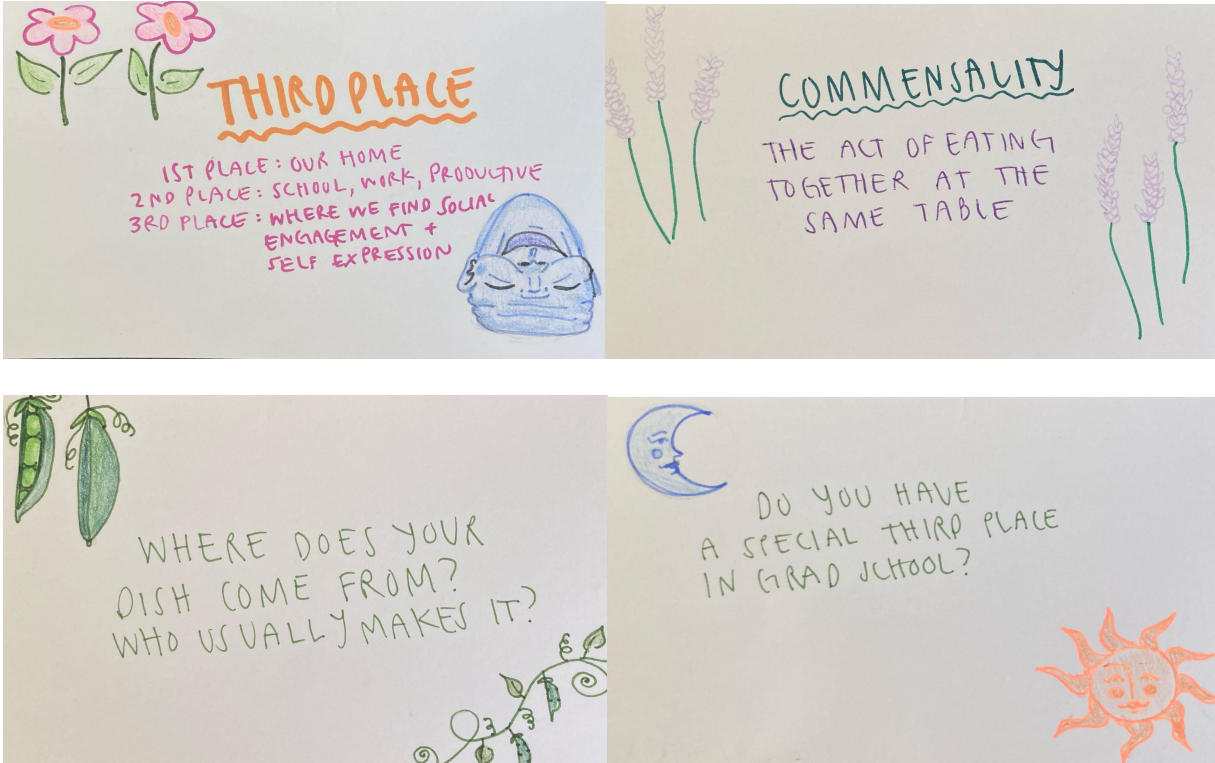 THIRD PLACE
1ST PLACE: OUR HOME
2ND PLACE: SCHOOL, WORK, PRODUCTIVE
3RD PLACE: WHERE WE FIND SOCIAL
ENGAGEMENT +
SELF EXPRESSION
COMMENSALITY
THE ACT OF EATING
TOGETHER AT THE
SAME TABLE
WHERE DOES YOUR
DISH COME FROM?
WHO USUALLY MAKES IT?
DO YOU HAVE
A SPECIAL THIRD PLACE
IN GRAD SCHOOL?